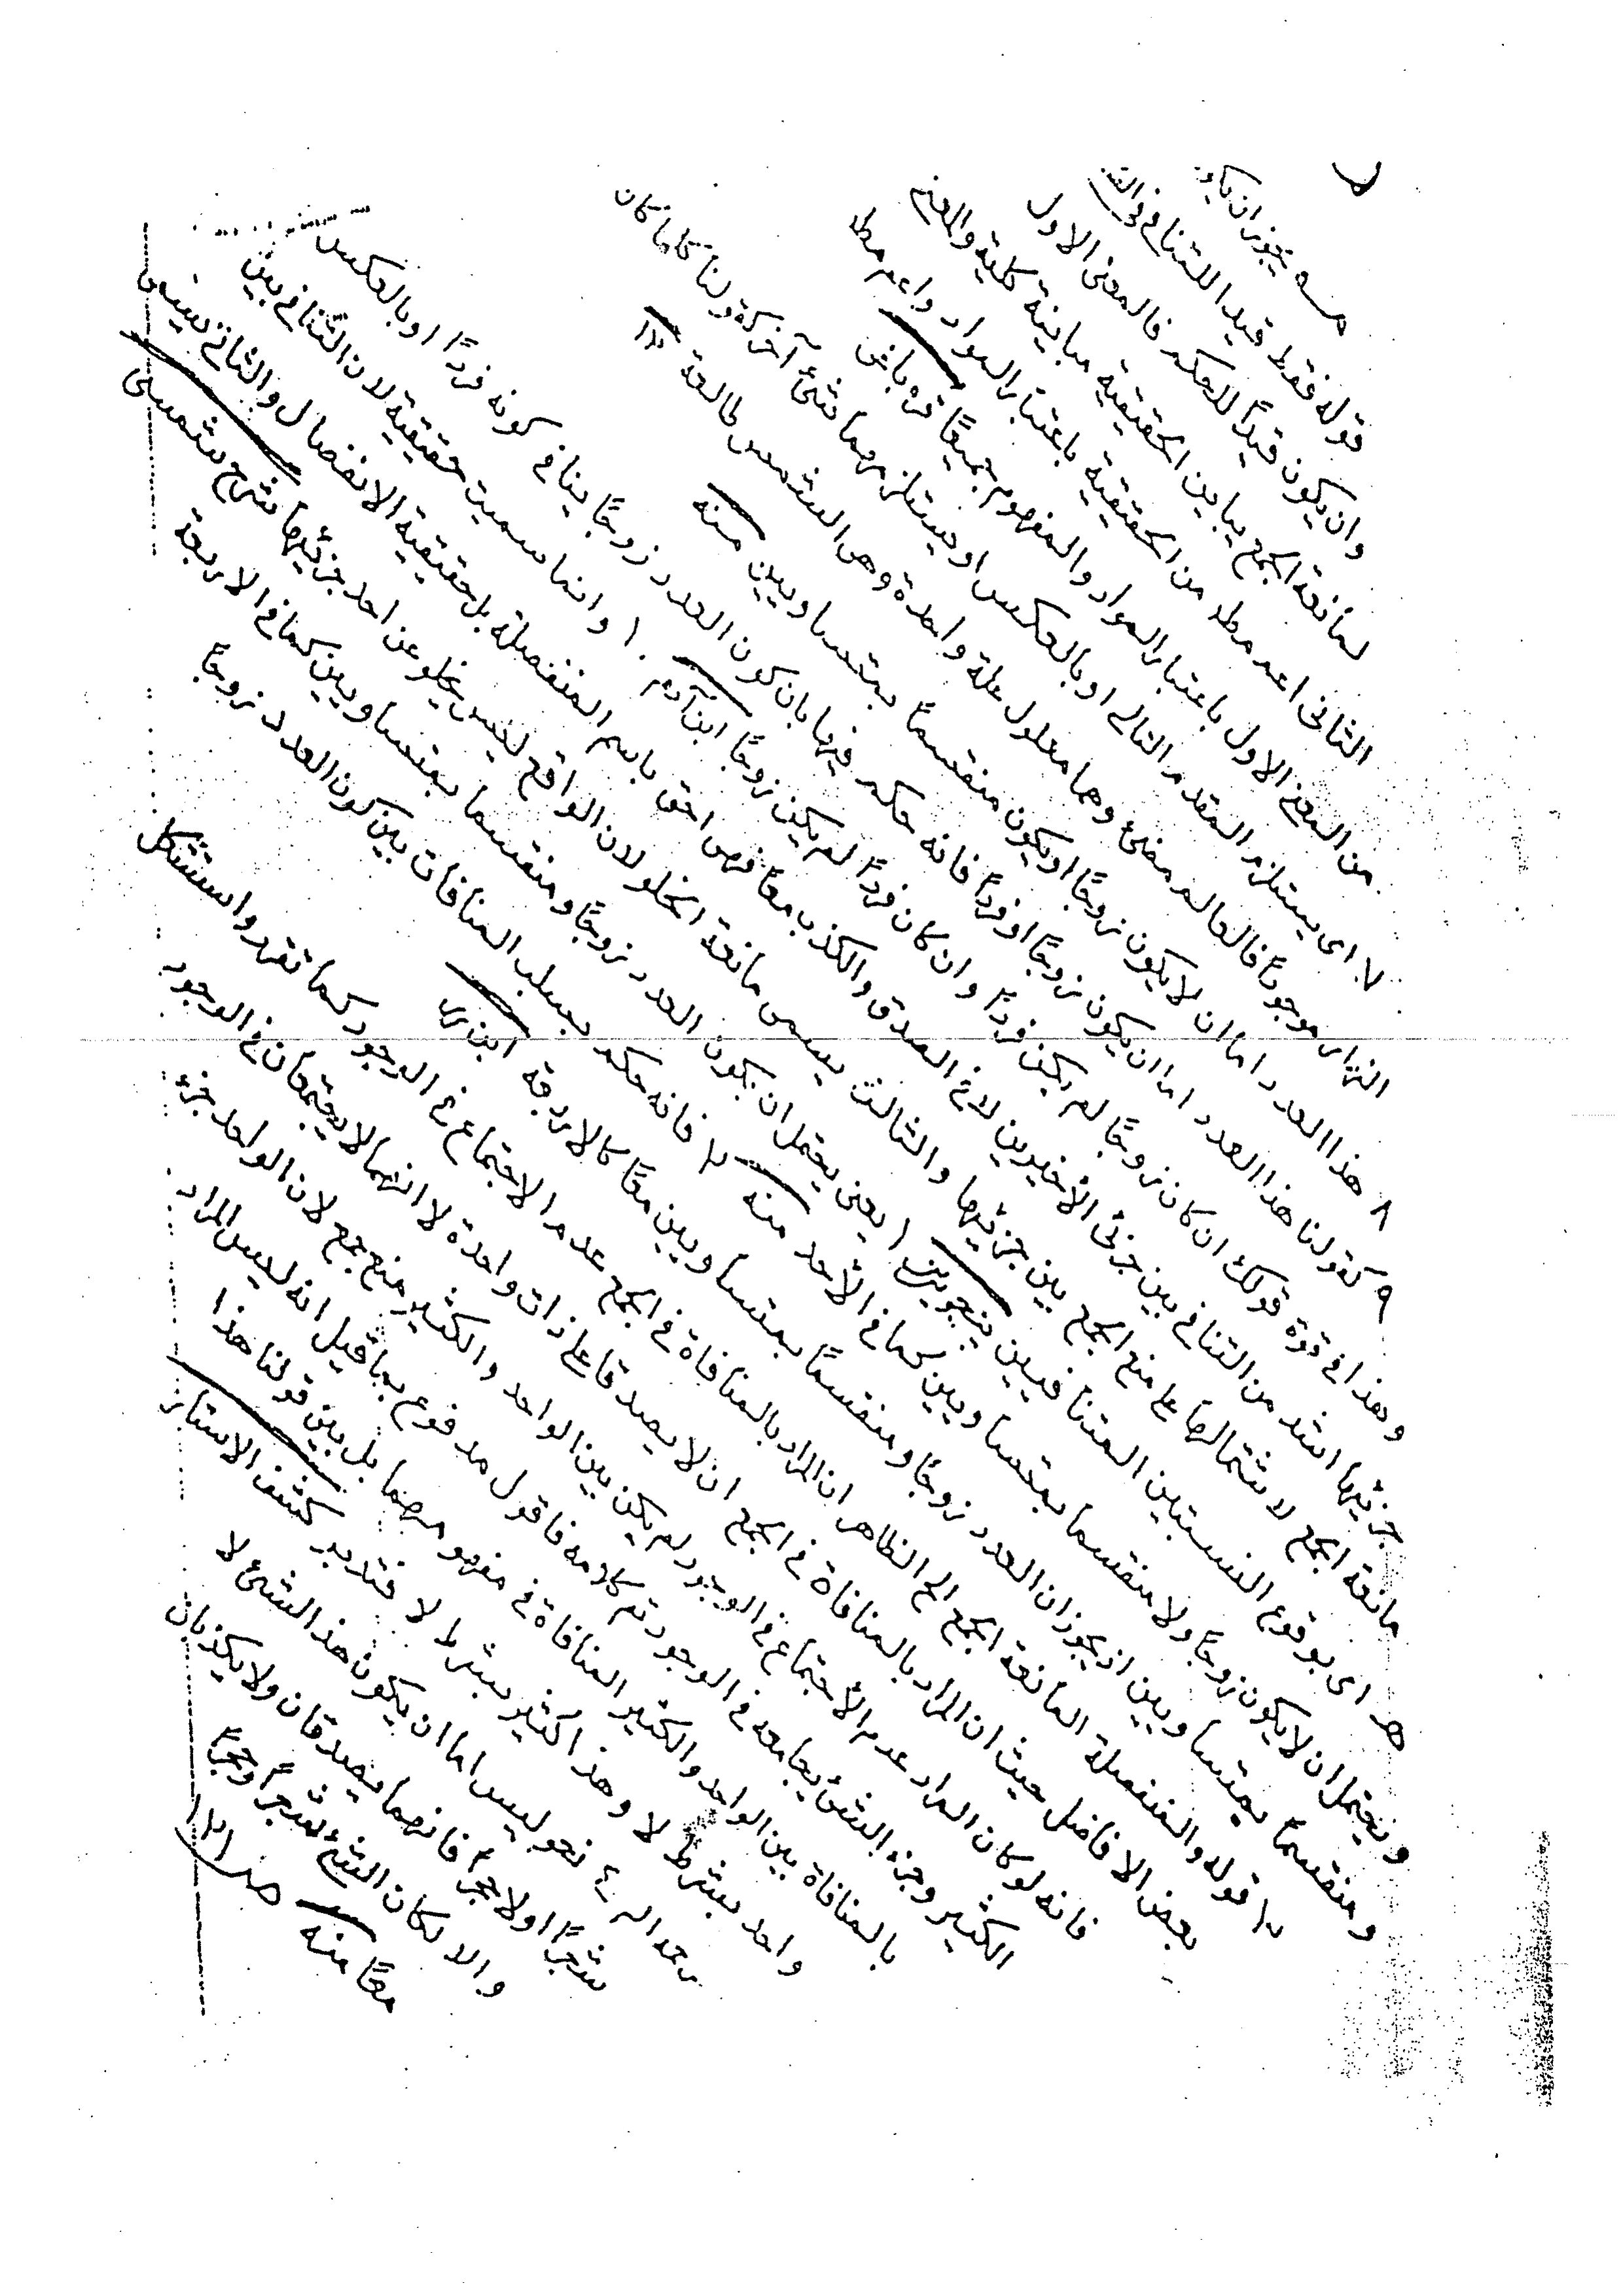 يجوز ان يكون
قوله فقط قيد اللتنافى فى
وان يكون قيداً للحكم فالمعنى الاول
لمانعة الجمع يباين الحقيقية مباينة كلية والمعنى
الثانى اعم مطـ من الحقيقية باعتبار المواد واعم مطـ
من المعنى الاول باعتبار المواد والمفهوم جميعًا قره باش
٧ اى يستلزم المقدم التالى او بالعكس او يستلزمهما شئ آخر كقولنا كلما كان
النهار موجودًا فالعالم مضئ وهما معلول علة واحدة وهى الشمس طالعة
٨ هذا العدد اما ان لا يكون زوجًا او يكون منقسمًا بمتساويين منه
٩ كقولنا هذا العدد اما ان يكون زوجًا او فردًا فانه حكم فيها بان كون العدد زوجًا ينافى كونه فردًا او بالعكس
وهذا فى قوة قولك ان كان زوجًا لم يكن فردًا وان كان فردًا لم يكن زوجًا ابن آدم ١٠ وانما سميت حقيقية لان التنافى بين
جزئيها اشد من التنافى بين جزئى الأخيرين لانه فى الصدق والكذب معًا فهى احق باسم المنفصلة بل حقيقية الانفصال والثانى تسمى
مانعة الجمع لاشتمالها على منع الجمع بين جزئيها والثالث يسمى مانعة الخلو لان الواقع ليس يخلو عن احد جزئيها شرح شمسى
اى بوقوع النسبتين المتنافيين بتجويزين ١ يعنى يحتمل ان يكون العدد زوجًا ومنقسما بمتساويين كما فى الاربعة
ويحتمل ان لا يكون زوجًا ولا منقسما بمتساويين كما فى الأحد منه فانه حكم بسلب المنافات بين كون العدد زوجًا
ومنقسمًا بمتساويين اذ يجوز ان العدد زوجًا ومنقسمًا بمتساويين معًا كالاربعة
قوله والمنفصلة المانعة الجمع الخ الظاهر ان المراد بالمنافاة فى الجمع عدم الاجتماع فى الوجود كما تقرر واستشكل
بعض الافاضل حيث ان المراد بالمنافاة فى الجمع ان لا يصدقا على ذات واحدة لا انهما لا يجتمعان فى الوجود
فانه لو كان المراد عدم الأجتماع فى الوجود لم يكن بين الواحد والكثير منع جمع لان الواحد جزء
الكثير وجزء الشئ يجامعه فى الوجود تم كلامه فاقول مدفوع بما قيل انه ليس المراد
بالمنافاة بين الواحد والكثير المنافاة فى مفهومهما بل بين قولنا هذا
واحد بشرط لا وهذا كثير بشرط لا فتدبر كشف الاستار
نحو ليس اما ان يكون هذا الشئ لا
شجرًا او لا حجرًا فانهما يصدقان ولا يكذبان
والا لكان الشئ شجرًا وحجرًا
معًا منه